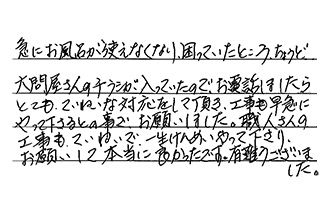 急にお風呂が使えなくなり、困っていたところ、ちょうど
大問屋さんのチラシが入っていたのでお電話しましたら
とてもていねいな対応をして頂き、工事も早急に
やって下さるとの事で、お願いしました。職人さんの
工事も、ていねいで一生けんめいやって下さり、
お願いして本当に良かったです。有難うございま
した。